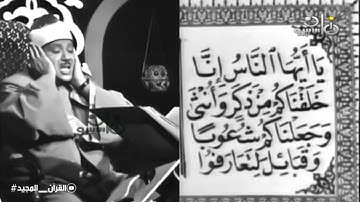 يَا أَيُّهَا النَّاسُ إِنَّا
خَلَقْنَاكُم مِّن ذَكَرٍ وَأُنثَىٰ
وَجَعَلْنَاكُمْ شُعُوبًا
وَقَبَائِلَ لِتَعَارَفُوا
#القرآن_المجيد